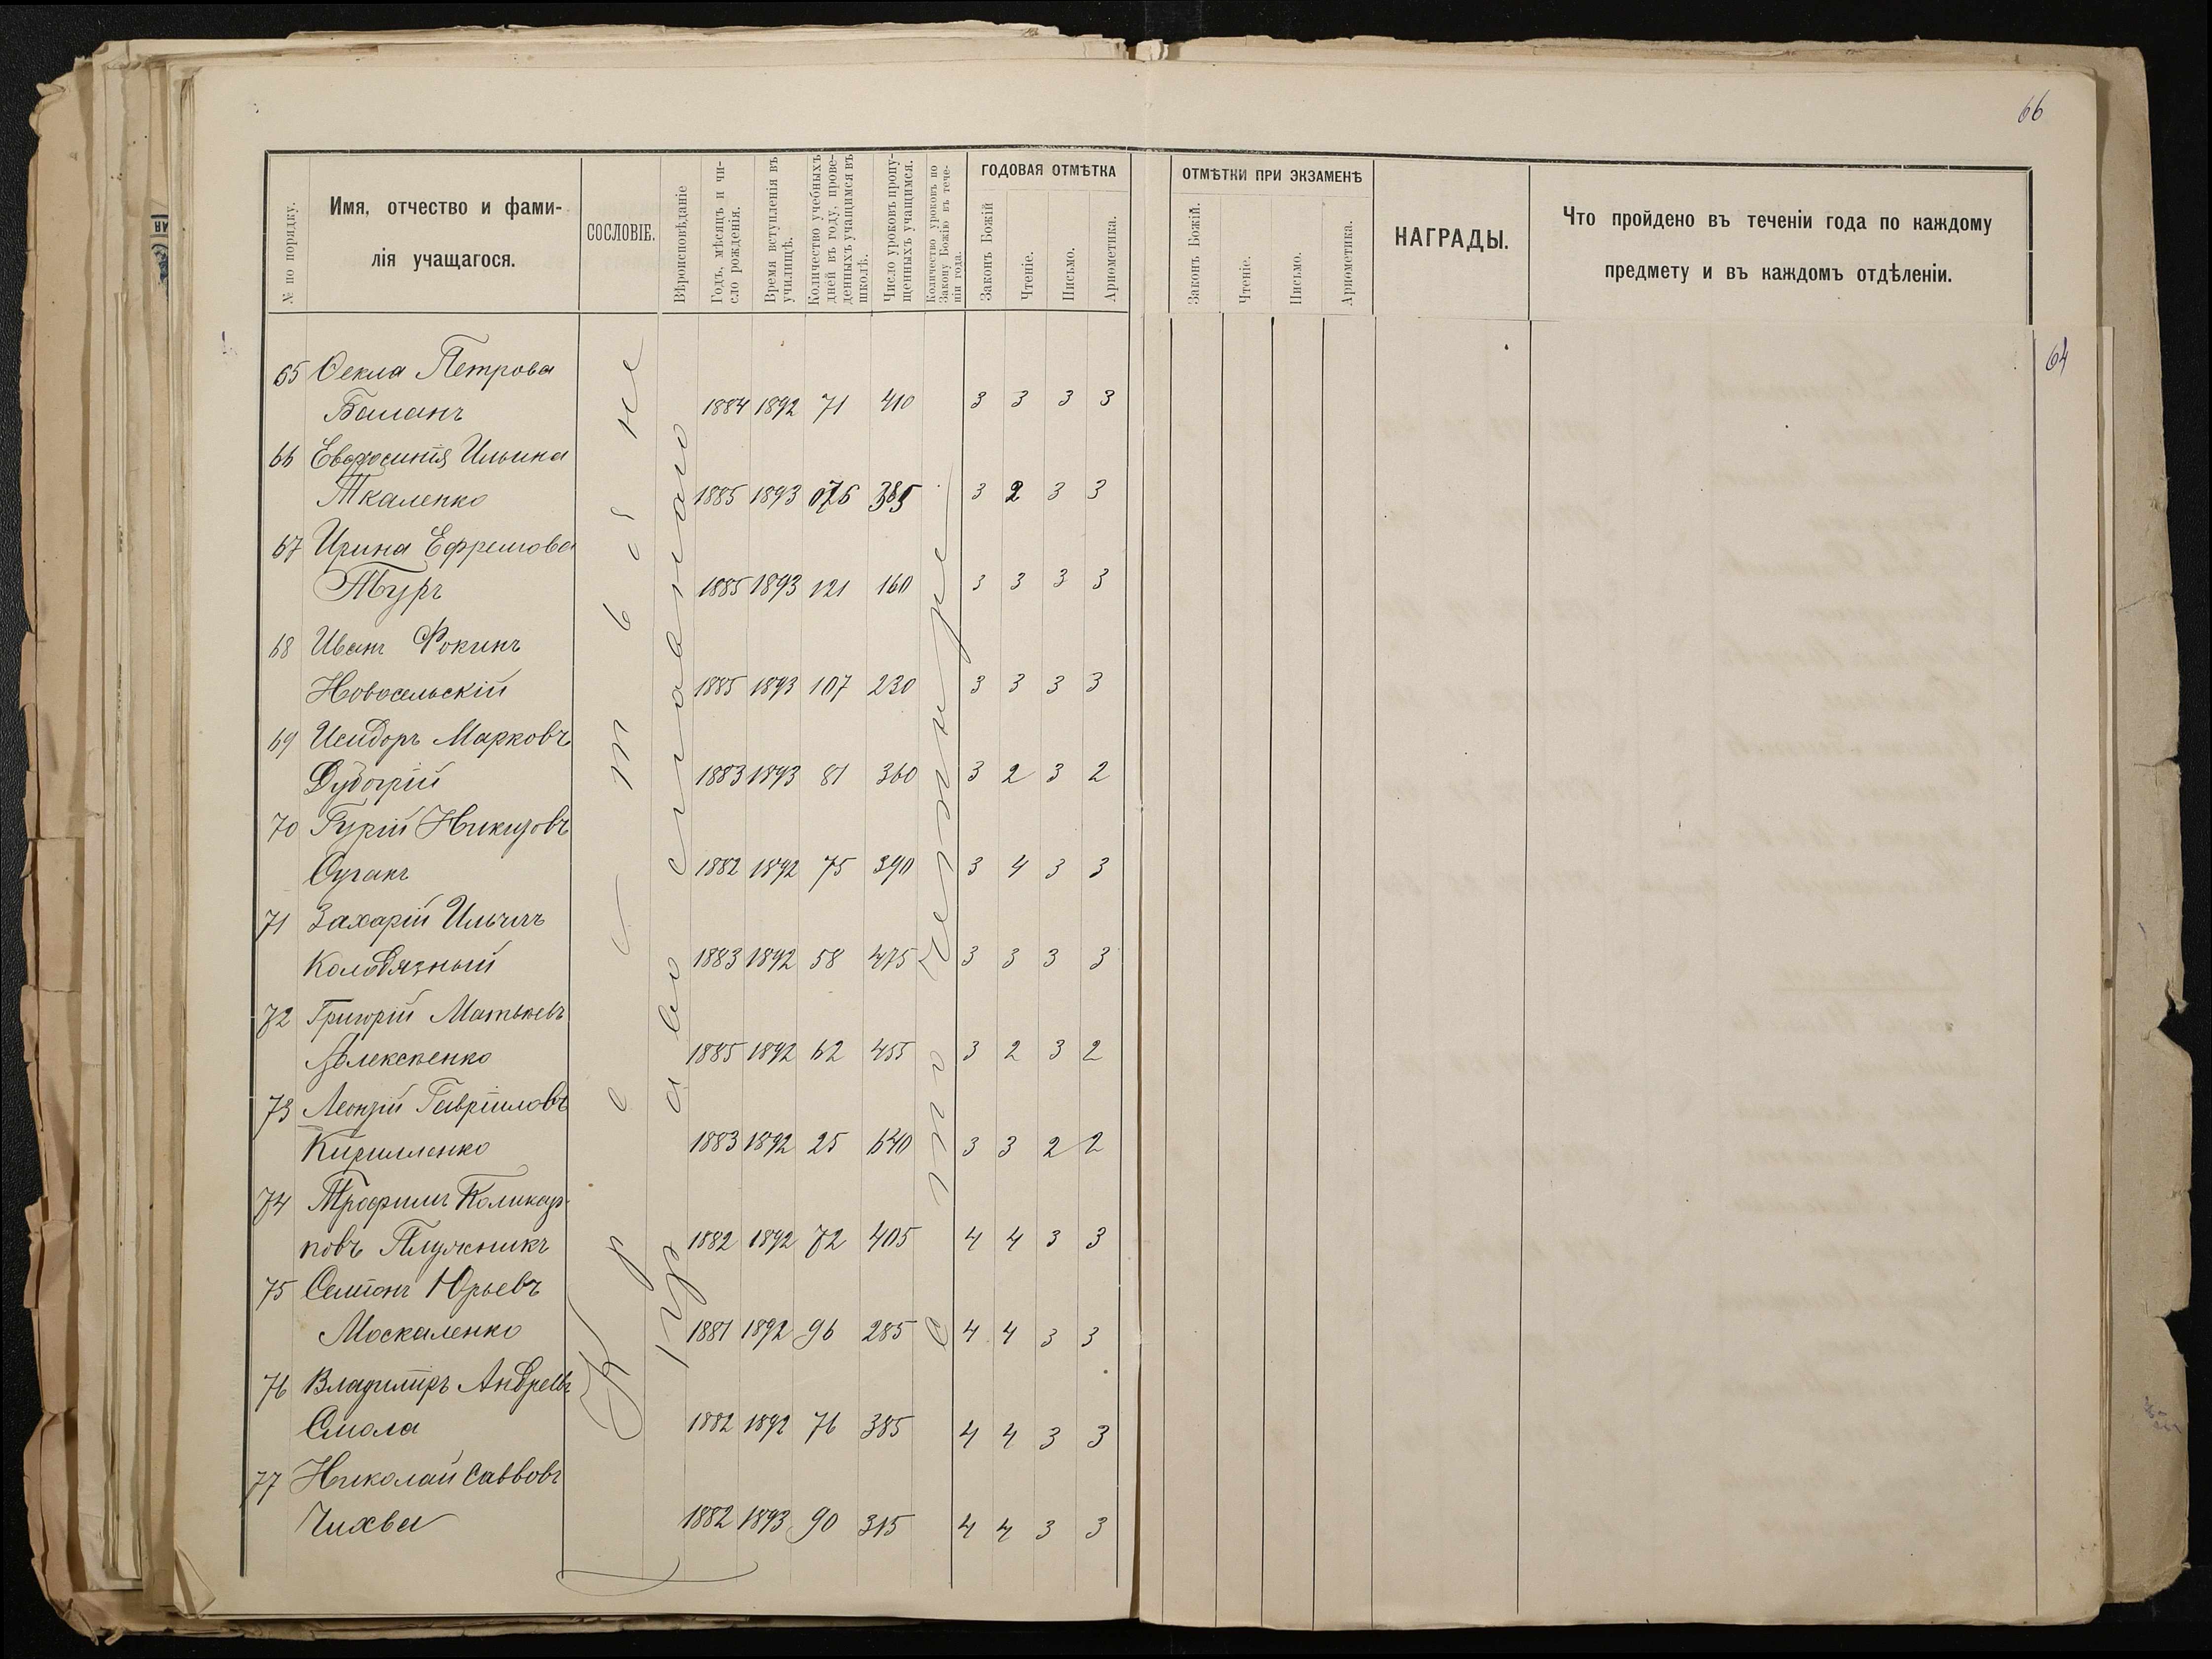 66
№ по порядку.
Имя, отчество и фами-
лія учащагося.
СОСЛОВІЕ.
Вѣроисповѣданіе
Годъ, мѣсяцъ и чи-
сло рожденія.
Время вступленія въ
училищѣ.
Количество учебныхъ
дней въ году, прове-
денныхъ учащимся въ
школѣ.
Число уроковъ пропу-
щенныхъ учащимся.
Количество уроковъ по
Закону Божію въ тече-
ніи года.
ГОДОВАЯ ОТМѢТКА
Законъ Божій
Чтеніе.
Письмо.
Ариөметика.
ОТМѢТКИ ПРИ ЭКЗАМЕНѢ
Законъ Божій.
Чтеніе.
Письмо.
Ариөметика.
НАГРАДЫ.
Что пройдено въ теченіи года по каждому
предмету и въ каждомъ отдѣленіи.
64
Крестьянскіе
Православнаго
сто четыре
65 Ѳекла Петрова
Баланъ 1884 1892 71 410 3 3 3 3
66 Евфросинія Ильина
Ткаленко 1885 1893 076 385 3 2 3 3
67 Ирина Ефремова
Туръ 1885 1893 121 160 3 3 3 3
68 Иванъ Фокинъ
Новосельскій 1885 1893 107 230 3 3 3 3
69 Исидоръ Марковъ
1883 1893 81 360 3 2 3 2
70 Гурій
1882 1892 75 390 3 4 3 3
71 Захарій Ильичъ
Коловязный 1883 1892 58 475 3 3 3 3
72 Григорій Матѳѣевъ
Алексѣенко 1885 1892 62 455 3 2 3 2
73 Леонтій Гавріиловъ
Кириленко 1883 1892 25 640 3 3 2 2
74 Трофимъ Поликар-
повъ Плужникъ 1882 1892 72 405 4 4 3 3
75 Семіонъ Юрьевъ
Москаленко 1881 1892 96 285 4 4 3 3
76 Владиміръ Андреевъ
Смола 1882 1892 76 385 4 4 3 3
77 Николай Саввовъ
Чихва 1882 1893 90 315 4 4 3 3